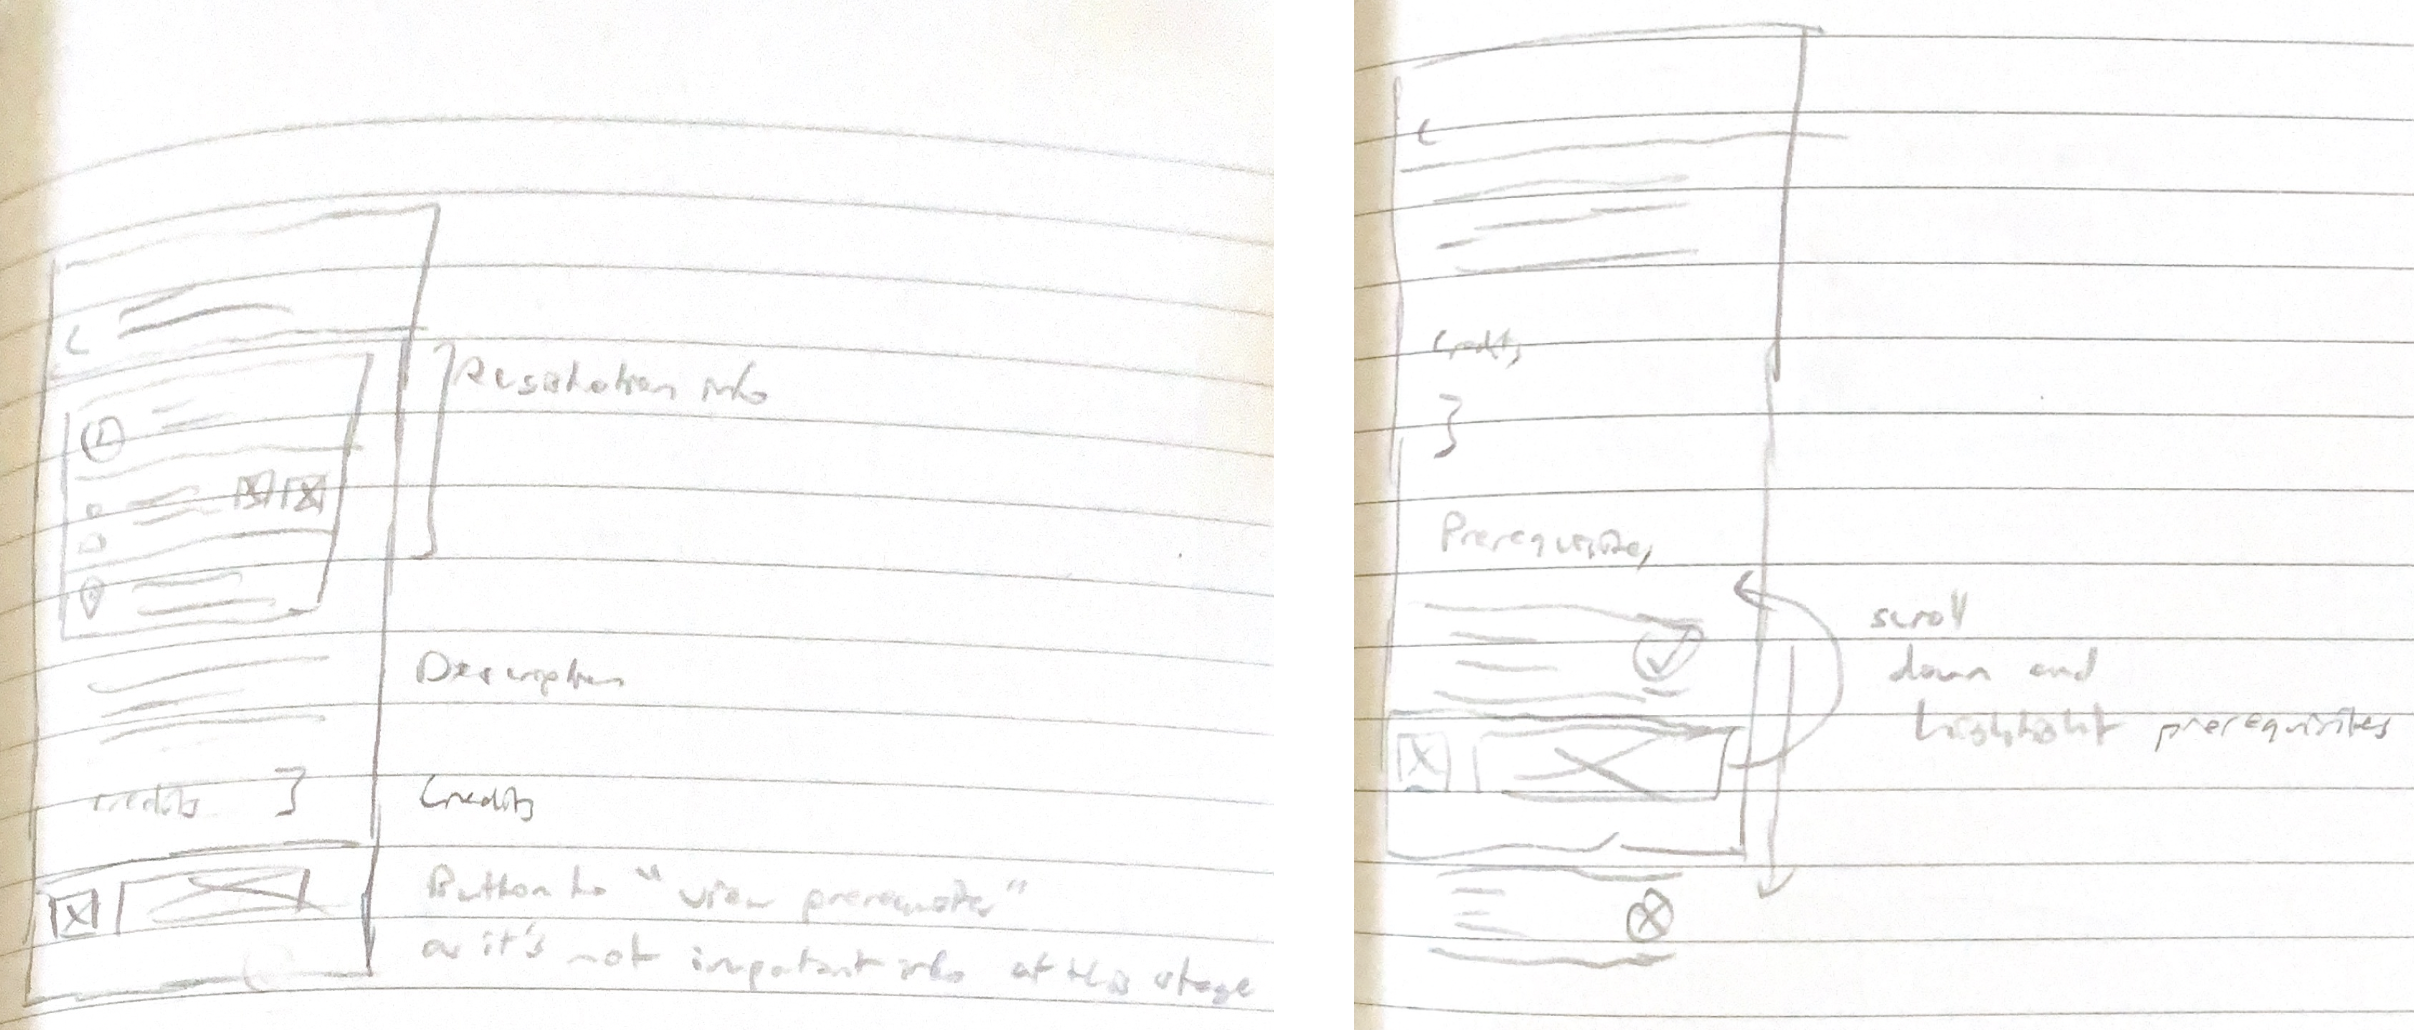 Registration info
Description
credits 3
Credits
Button to "view prerequisites"
as it's not important info at this stage
Credits
3
Prerequisites
scroll
down and
highlight prerequisites